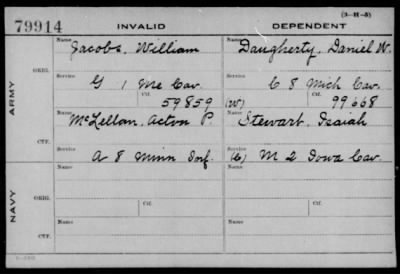 (3-11-5)
79914 INVALID DEPENDENT
ARMY
ORIG.
Name Jacobs, William
Name Daugherty, Daniel W.
Service G 1 Me Cav.
Service C 8 Mich Cav.
Ctf. 59859
(W) Ctf. 99668
CTF.
Name McLellan, Acton P.
Name Stewart, Isaiah
Service A 8 Minn Inf.
Service (C) M 2 Iowa Cav.
NAVY
ORIG.
Name
Name
Service Ctf.
Service Ctf.
CTF.
Name
Name
Service
Service